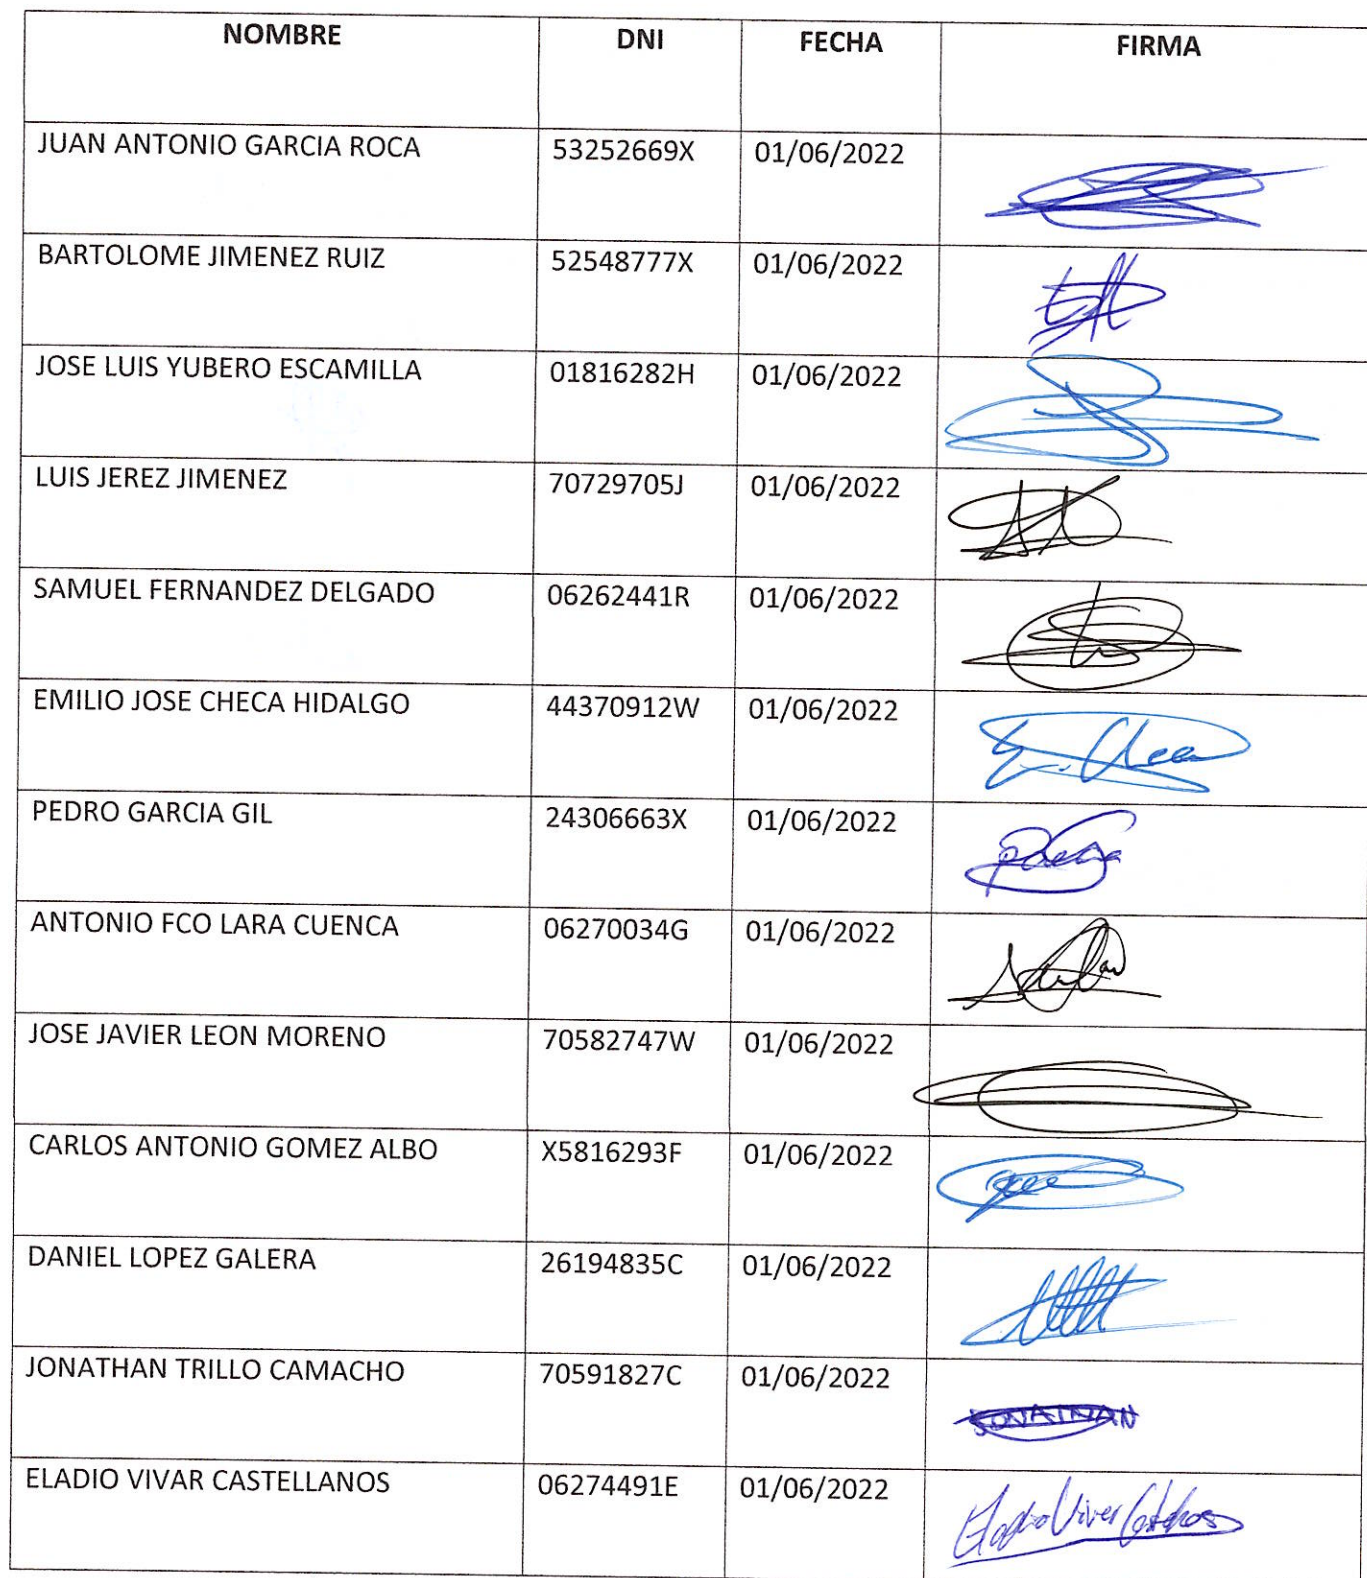 NOMBRE DNI FECHA FIRMA
JUAN ANTONIO GARCIA ROCA 53252669X 01/06/2022
BARTOLOME JIMENEZ RUIZ 52548777X 01/06/2022
JOSE LUIS YUBERO ESCAMILLA 01816282H 01/06/2022
LUIS JEREZ JIMENEZ 70729705J 01/06/2022
SAMUEL FERNANDEZ DELGADO 06262441R 01/06/2022
EMILIO JOSE CHECA HIDALGO 44370912W 01/06/2022
PEDRO GARCIA GIL 24306663X 01/06/2022
ANTONIO FCO LARA CUENCA 06270034G 01/06/2022
JOSE JAVIER LEON MORENO 70582747W 01/06/2022
CARLOS ANTONIO GOMEZ ALBO X5816293F 01/06/2022
DANIEL LOPEZ GALERA 26194835C 01/06/2022
JONATHAN TRILLO CAMACHO 70591827C 01/06/2022
ELADIO VIVAR CASTELLANOS 06274491E 01/06/2022